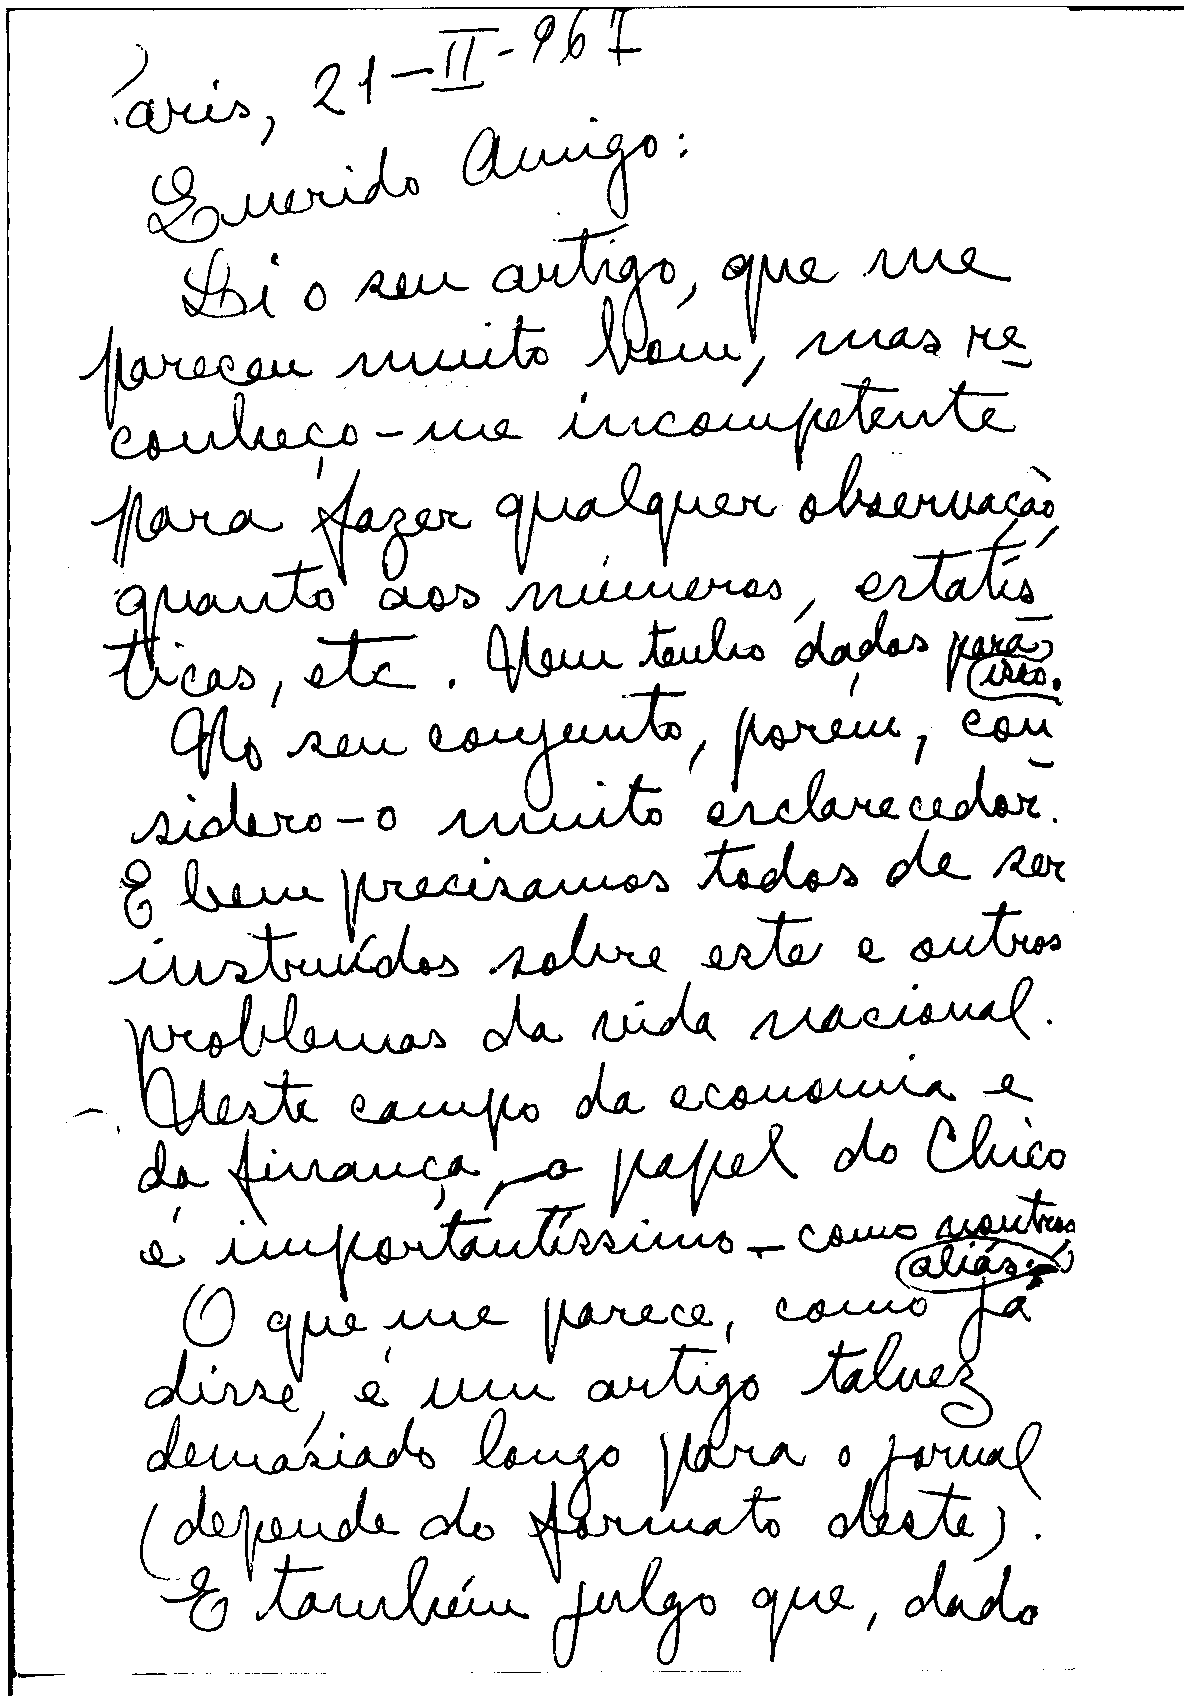 Paris, 21-II-967
Querido Amigo:
Li o seu artigo, que me
pareceu muito bom, mas re-
conheço-me incompetente
para fazer qualquer observação,
quanto aos números, estatís-
ticas, etc. Nem tenho dados para
isso.
No seu conjunto, porém, con-
sidero-o muito esclarecedor.
E bem precisamos todos de ser
instruídos sobre este e outros
problemas da vida nacional.
Neste campo da economia e
da finança, o papel do Chico
é importantíssimo - como noutros
aliás.
O que me parece, como já
disse, é um artigo talvez
demasiado longo para o jornal
(depende do formato deste).
E também julgo que, dado